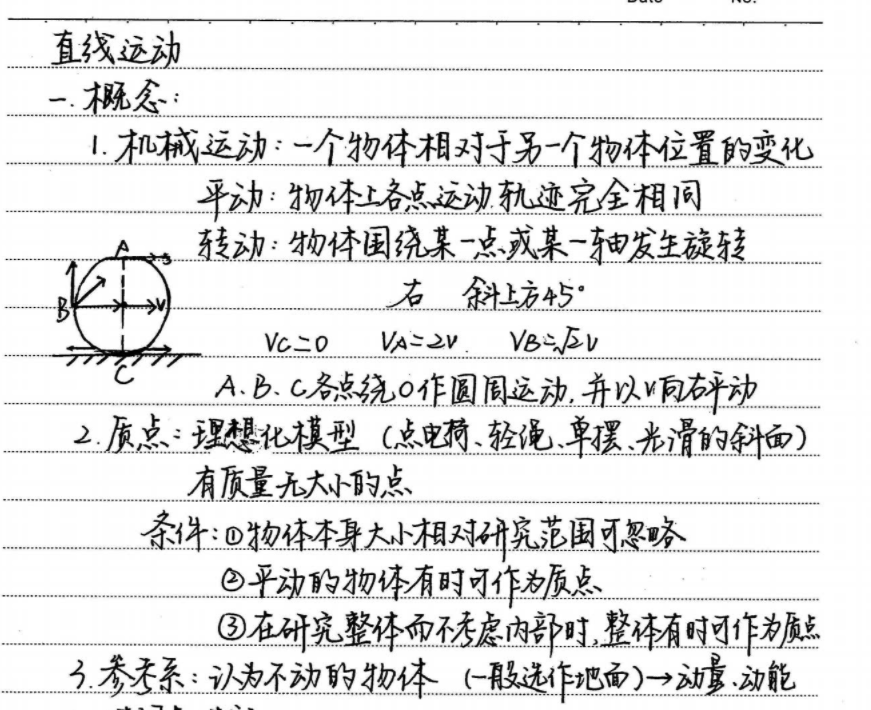 No.
直线运动
一. 概念:
1. 机械运动: 一个物体相对于另一个物体位置的变化
平动: 物体上各点运动轨迹完全相同
转动: 物体围绕某一点或某一轴发生旋转
A
B
V
C
右 斜上方45°
VC=0 VA=2V VB=√2V
A、B、C各点绕O作圆周运动, 并以V向右平动
2. 质点: 理想化模型 (点电荷、轻绳、单摆、光滑的斜面)
有质量无大小的点
条件: ①物体本身大小相对研究范围可忽略
②平动的物体有时可作为质点
③在研究整体而不考虑内部时, 整体有时可作为质点
3. 参考系: 认为不动的物体 (一般选作地面)→动量、动能